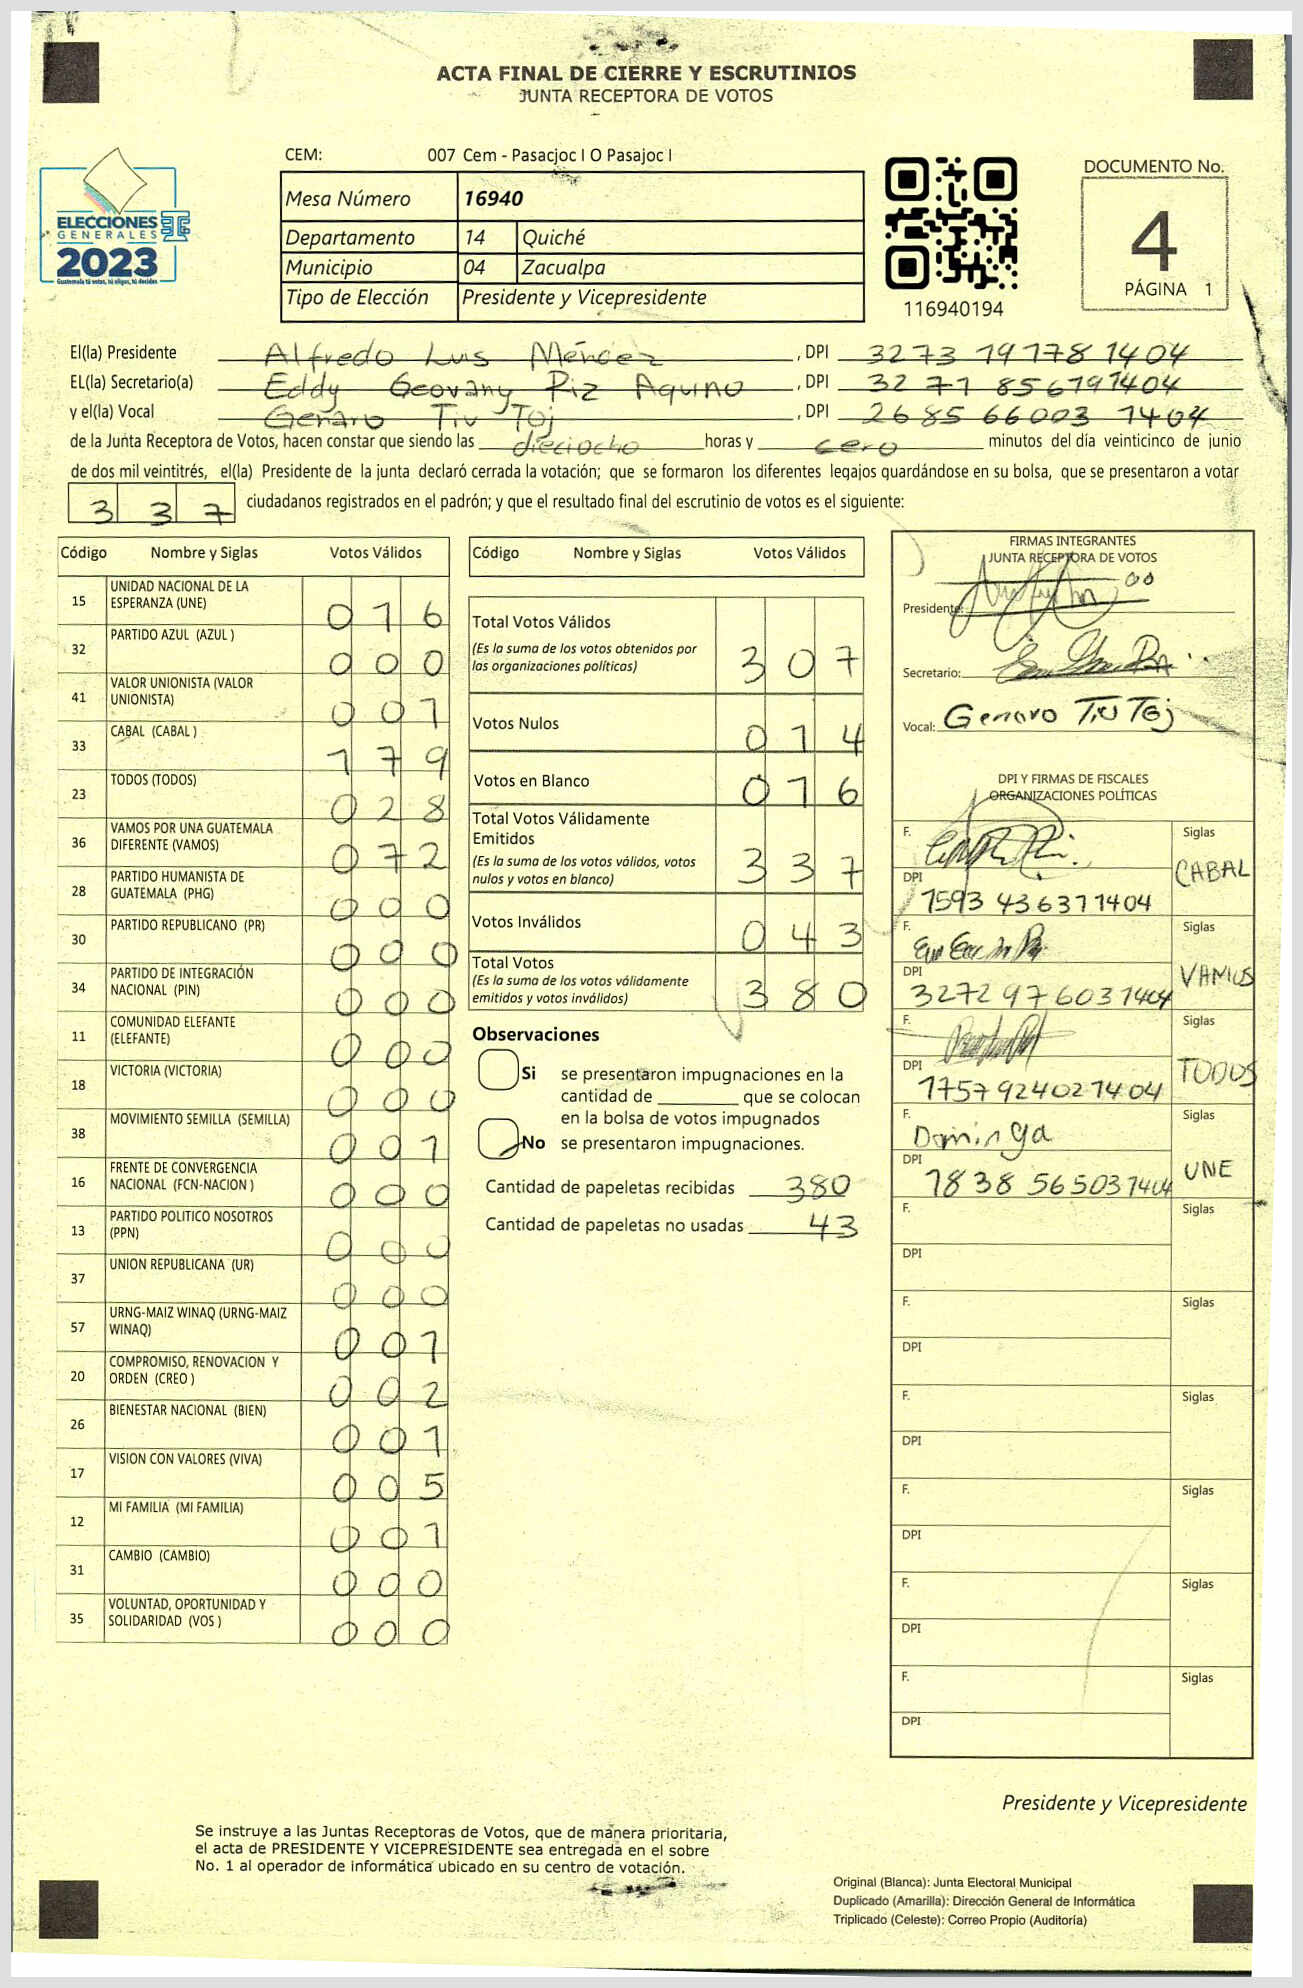 ACTA FINAL DE CIERRE Y ESCRUTINIOS
JUNTA RECEPTORA DE VOTOS
ELECCIONES
GENERALES
2023
Guatemala tú votas, tú eliges, tú decides
CEM: 007 Cem - Pasacjoc I O Pasajoc I
Mesa Número 16940
Departamento 14 Quiché
Municipio 04 Zacualpa
Tipo de Elección Presidente y Vicepresidente
116940194
DOCUMENTO No.
4
PÁGINA 1
El(la) Presidente Alfredo Luis Méndez, DPI 3273 19778 1404
EL(la) Secretario(a) Eddy Geovany Riz Aquino, DPI 3271 85679 1404
y el(la) Vocal Genaro Tiu Toj, DPI 2685 66003 1404
de la Junta Receptora de Votos, hacen constar que siendo las dieciocho horas y cero minutos del día veinticinco de junio
de dos mil veintitrés, el(la) Presidente de la junta declaró cerrada la votación; que se formaron los diferentes legajos guardándose en su bolsa, que se presentaron a votar
337 ciudadanos registrados en el padrón; y que el resultado final del escrutinio de votos es el siguiente:
Código Nombre y Siglas Votos Válidos
15 UNIDAD NACIONAL DE LA
ESPERANZA (UNE) 016
32 PARTIDO AZUL (AZUL ) 000
41 VALOR UNIONISTA (VALOR
UNIONISTA) 001
33 CABAL (CABAL ) 179
23 TODOS (TODOS) 028
36 VAMOS POR UNA GUATEMALA
DIFERENTE (VAMOS) 072
28 PARTIDO HUMANISTA DE
GUATEMALA (PHG) 000
30 PARTIDO REPUBLICANO (PR) 000
34 PARTIDO DE INTEGRACIÓN
NACIONAL (PIN) 000
11 COMUNIDAD ELEFANTE
(ELEFANTE) 000
18 VICTORIA (VICTORIA) 000
38 MOVIMIENTO SEMILLA (SEMILLA) 001
16 FRENTE DE CONVERGENCIA
NACIONAL (FCN-NACION ) 000
13 PARTIDO POLITICO NOSOTROS
(PPN) 000
37 UNION REPUBLICANA (UR) 000
57 URNG-MAIZ WINAQ (URNG-MAIZ
WINAQ) 001
20 COMPROMISO, RENOVACION Y
ORDEN (CREO ) 002
26 BIENESTAR NACIONAL (BIEN) 001
17 VISION CON VALORES (VIVA) 005
12 MI FAMILIA (MI FAMILIA) 001
31 CAMBIO (CAMBIO) 000
35 VOLUNTAD, OPORTUNIDAD Y
SOLIDARIDAD (VOS ) 000
Código Nombre y Siglas Votos Válidos
Total Votos Válidos 307
(Es la suma de los votos obtenidos por
las organizaciones políticas)
Votos Nulos 014
Votos en Blanco 016
Total Votos Válidamente
Emitidos 337
(Es la suma de los votos válidos, votos
nulos y votos en blanco)
Votos Inválidos 043
Total Votos 380
(Es la suma de los votos válidamente
emitidos y votos inválidos)
Observaciones
Si se presentaron impugnaciones en la
cantidad de ________ que se colocan
en la bolsa de votos impugnados
No se presentaron impugnaciones.
Cantidad de papeletas recibidas 380
Cantidad de papeletas no usadas 43
FIRMAS INTEGRANTES
JUNTA RECEPTORA DE VOTOS
Presidente:
Secretario:
Vocal: Genaro Tiu Toj
DPI Y FIRMAS DE FISCALES
ORGANIZACIONES POLÍTICAS
F. Siglas
CABAL
DPI
1593 43637 1404
F. Siglas
VAMOS
DPI
3272 97603 1404
F. Siglas
TODOS
DPI
1757 92402 1404
F. Dominga Siglas
UNE
DPI
1838 56503 1404
F. Siglas
DPI
F. Siglas
DPI
F. Siglas
DPI
F. Siglas
DPI
F. Siglas
DPI
F. Siglas
DPI
Presidente y Vicepresidente
Se instruye a las Juntas Receptoras de Votos, que de manera prioritaria,
el acta de PRESIDENTE Y VICEPRESIDENTE sea entregada en el sobre
No. 1 al operador de informática ubicado en su centro de votación.
Original (Blanca): Junta Electoral Municipal
Duplicado (Amarilla): Dirección General de Informática
Triplicado (Celeste): Correo Propio (Auditoría)